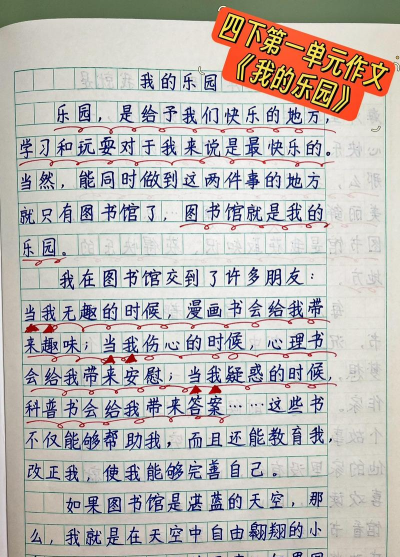 四下第一单元作文
《我的乐园》
我的乐园
乐园，是给予我们快乐的地方，
学习和玩耍对于我来说是最快乐的。
当然，能同时做到这两件事的地方
就只有图书馆了，图书馆就是我的
乐园。
我在图书馆交到了许多朋友：
当我无趣的时候，漫画书会给我带
来趣味；当我伤心的时候，心理书
会给我带来安慰；当我疑惑的时候，
科普书会给我带来答案……这些书
不仅能够帮助我，而且还能教育我，
改正我，使我能够完善自己。
如果图书馆是湛蓝的天空，那
么，我就是在天空中自由翱翔的小